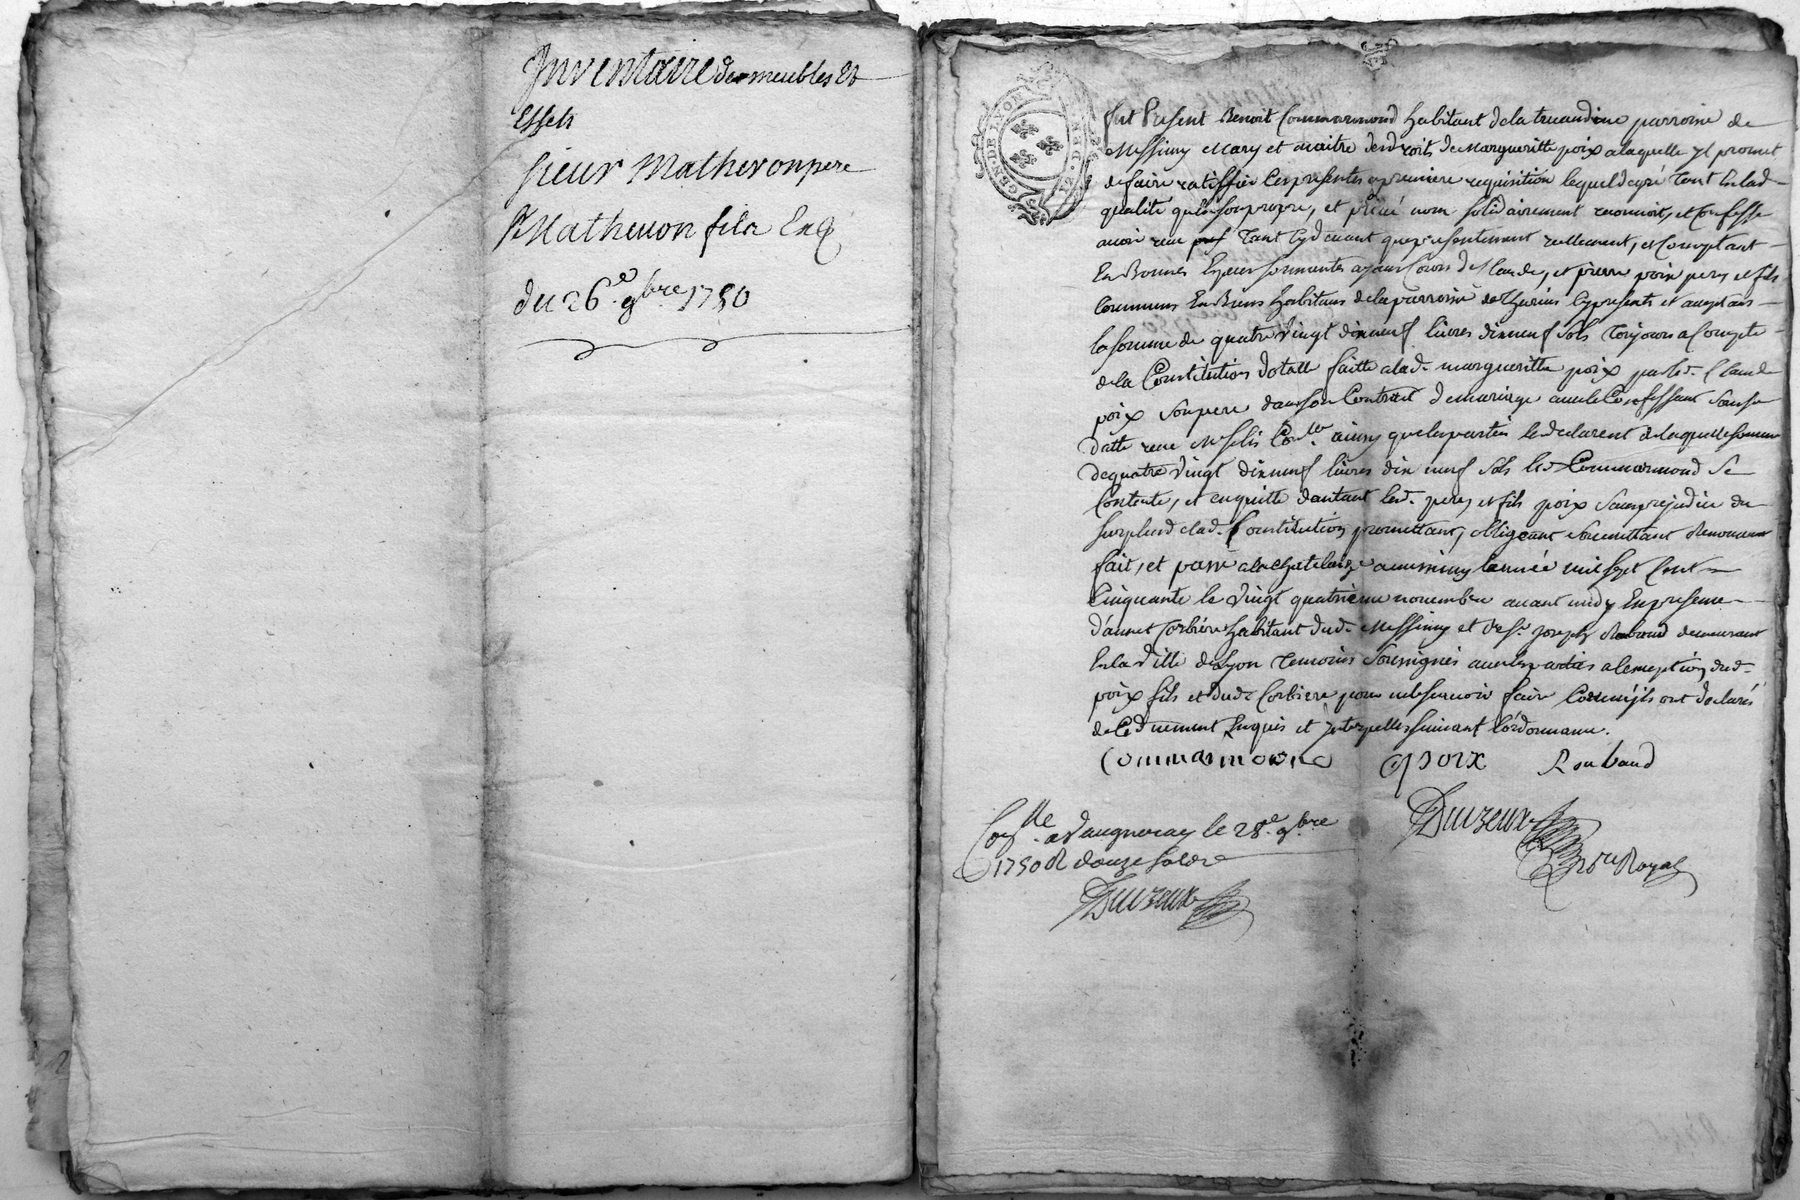 Inventaire des meubles et
effets
sieur Matheron pere
Sr Matheron fils
du 26.e 9bre 1750
GEN. DE LYON
fut Present Benoit Commarmond habitant de la parroisse de
Messimy mary et maitre des droits de Margueritte poix a laquelle yl promet
de faire ratiffier les presentes a premiere requisition lequel de gré tant en lad.
qualité qu'en son propre, et privé nom solidairement reconnoit, et confesse
avoir reçu tant cydevant que presentement reellement, et comptant
en bonnes especes sonnantes ayant cours de Claude, et pierre poix pere, et fils
communs en biens habitans de la parroisse de Thurins cy presents et acceptans
la somme de quatre vingt dixneuf livres dixneuf sols toujours a compte
de la Constitution dotalle faitte a lad. margueritte poix par led. Claude
poix son pere dans son Contract de mariage avec le Confessant sous sa
datte reçu ainsy que les parties le declarent de laquelle somme
de quatre vingt dixneuf livres dix neuf sols led. Commarmond se
contente, et en quitte d'autant lesd. pere, et fils poix sans prejudice du
surplus de lad. Constitution promettant, obligeant soumettant renonceant
fait, et passé a messimy l'année mil sept cent
cinquante le vingt quatrieme novembre avant midy en presence
d'annet Corbiere habitant dud. Messimy et de Sr. Joseph Roubaud demeurant
en la ville de Lyon temoins soussignés avec les parties a l'exception dud.
poix fils et dud. Corbiere pour ne le sçavoir faire comme ils ont declarés
de ce duement enquis et interpellés suivant l'ordonnance.
Commarmond poix Roubaud
Duizeux
Nore Royal
Conlle a Vaugneray le 28.e 9bre
1750 R douze sols
Duizeux